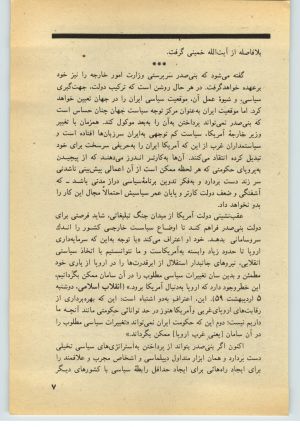 بلافاصله از آیت‌الله خمینی گرفت.
***
گفته می‌شود که بنی‌صدر سرپرستی وزارت امور خارجه را نیز خود
برعهده خواهدگرفت. در هر حال روشن است که ترکیب دولت، جهت‌گیری
سیاسی، و شیوه عمل آن، موقعیت سیاسی ایران را در جهان تعیین خواهد
کرد. اما موقعیت ایران به‌عنوان مرکز توجه سیاست جهان چنان حساس است
که بنی‌صدر نمی‌تواند پرداختن به‌آن را به‌بعد موکول کند. همزمان با تغییر
وزیر خارجهٔ آمریکا، سیاست کم توجهی به‌ایران سرزبان‌ها افتاده است و
سیاستمداران غرب از این که آمریکا ایران را به‌حریفی سرسخت برای خود
تبدیل کرده انتقاد می‌کنند. آن‌ها به‌کارتر اندرز می‌دهند که از پیچیدن
به‌پروپای حکومتی که هر لحظه ممکن است از آن اعمالی پیش‌بینی ناشدنی
سر زند دست بردارد و به‌فکر تدوین برنامهٔ‌سیاسی دراز مدتی باشد ـ که
آشفتگی و ضعف دولت کارتر و پایان عمر سیاسیش احتمالاً مجال این کار را
بدو نخواهد داد.
عقب‌نشینی دولت آمریکا از میدان جنگ تبلیغاتی، شاید فرصتی برای
دولت بنی‌صدر فراهم کند تا اوضاع سیاست خارجی کشور را اندک
سروسامانی بدهد. خود او اعتراف می‌کند «با توجه به‌این که سرمایه‌داری
اروپا تا حدود زیاد وابسته به‌آمریکاست و ما نتوانستیم با اتخاذ سیاستی
انقلابی، نیروهای جانبدار استقلال از ابرقدرت‌ها را در اروپا از یاری خود
مطمئن و بدین سان تغییرات سیاسی مطلوب را در آن سامان ممکن بگردانیم،
این خطر وجود دارد که اروپا به‌دنبال آمریکا برود.» (انقلاب اسلامی، دوشنبه
۵ اردیبهشت ۵۹). این، اعتراف به‌دو اشتباه است: این که بهره‌برداری از
رقابت‌های اروپای‌غربی وآمریکا هنوز در حد توانائی حکومتی مانند آنچه ما
داریم نیست؛ دوم این که حکومت ایران نمی‌تواند «تغییرات سیاسی مطلوب را
در آن سامان [یعنی غرب اروپا] ممکن بگرداند».
اکنون اگر بنی‌صدر بتواند از پرداختن به‌استراتژی‌های سیاسی تخیلی
دست بردارد و همان ابزار متداول دیپلماسی و اشخاص مجرب و علاقمند را
برای ایجاد راه‌هائی برای ایجاد حداقل رابطهٔ سیاسی با کشورهای دیگر
۷